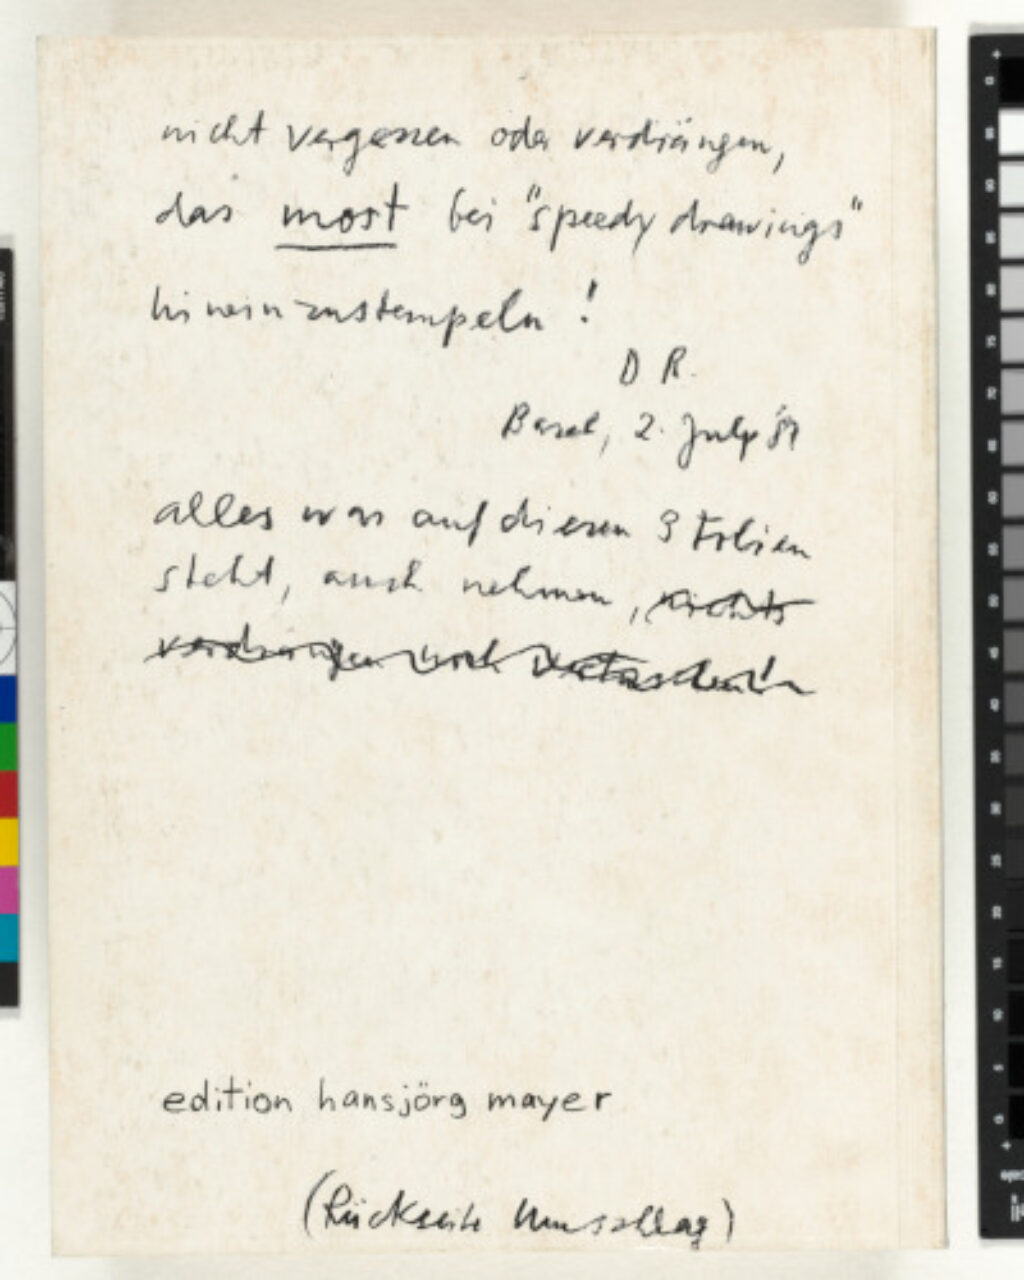 nicht vergessen oder verdrängen,
das most bei "speedy drawings"
hineinzustempeln !
D R.
Basel, 2. July
alles was auf diesen 3 Folien
steht, auch nehmen, nichts
verdrängen und
edition hansjörg mayer
(Rückseite Umschlag)